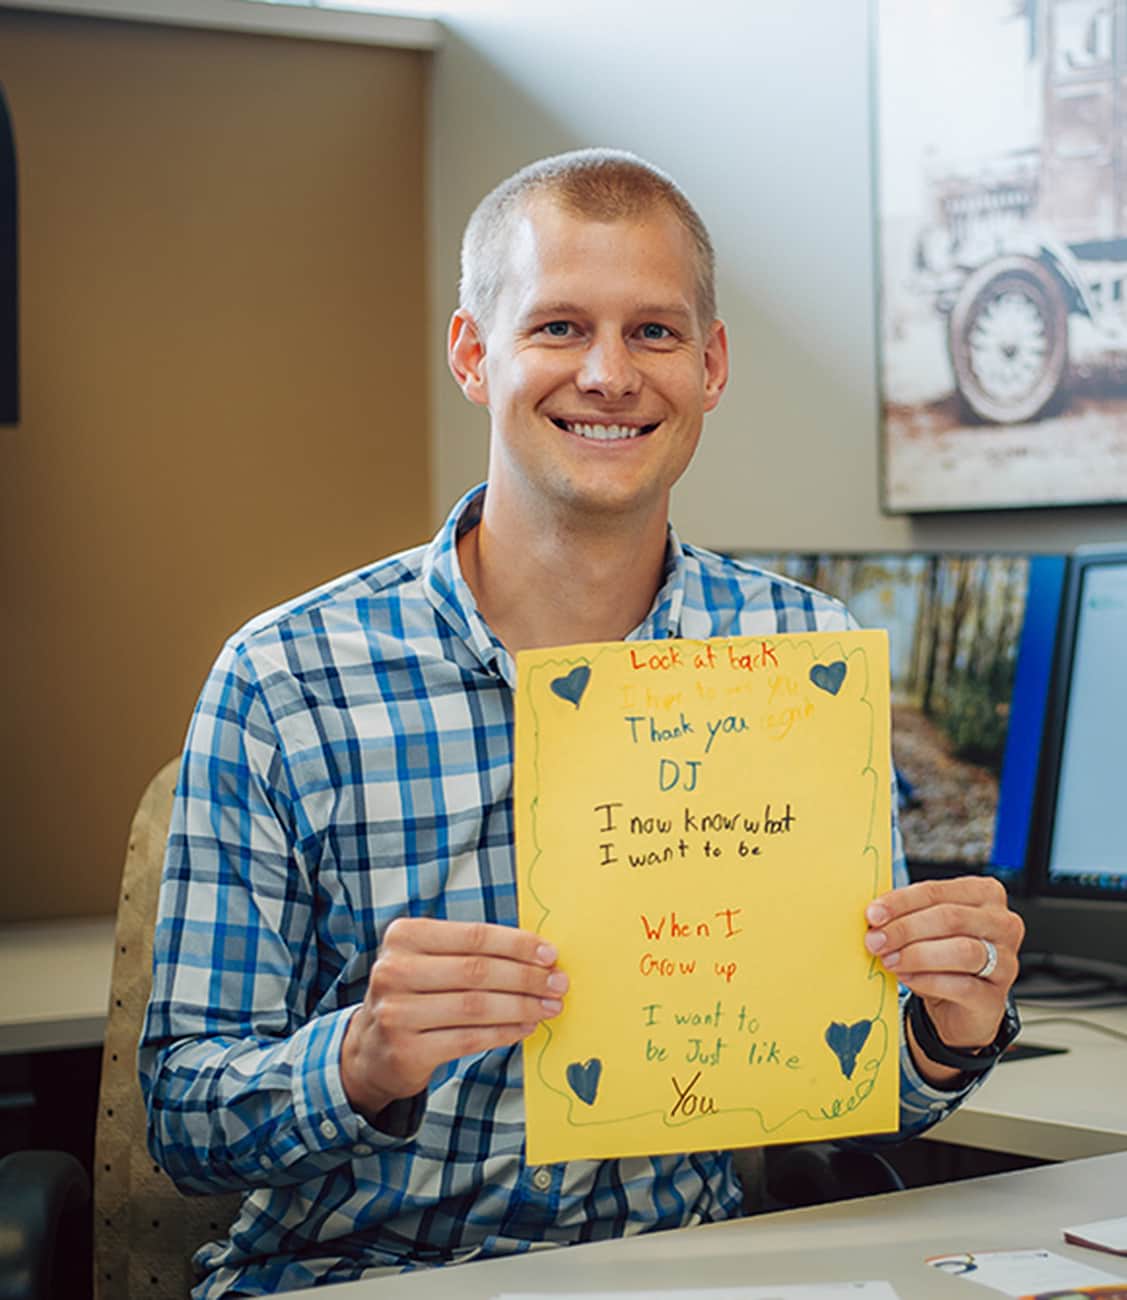 Look at back
I hope to see you
Thank you again
DJ
I now know what
I want to be
When I
Grow up
I want to
be Just like
You